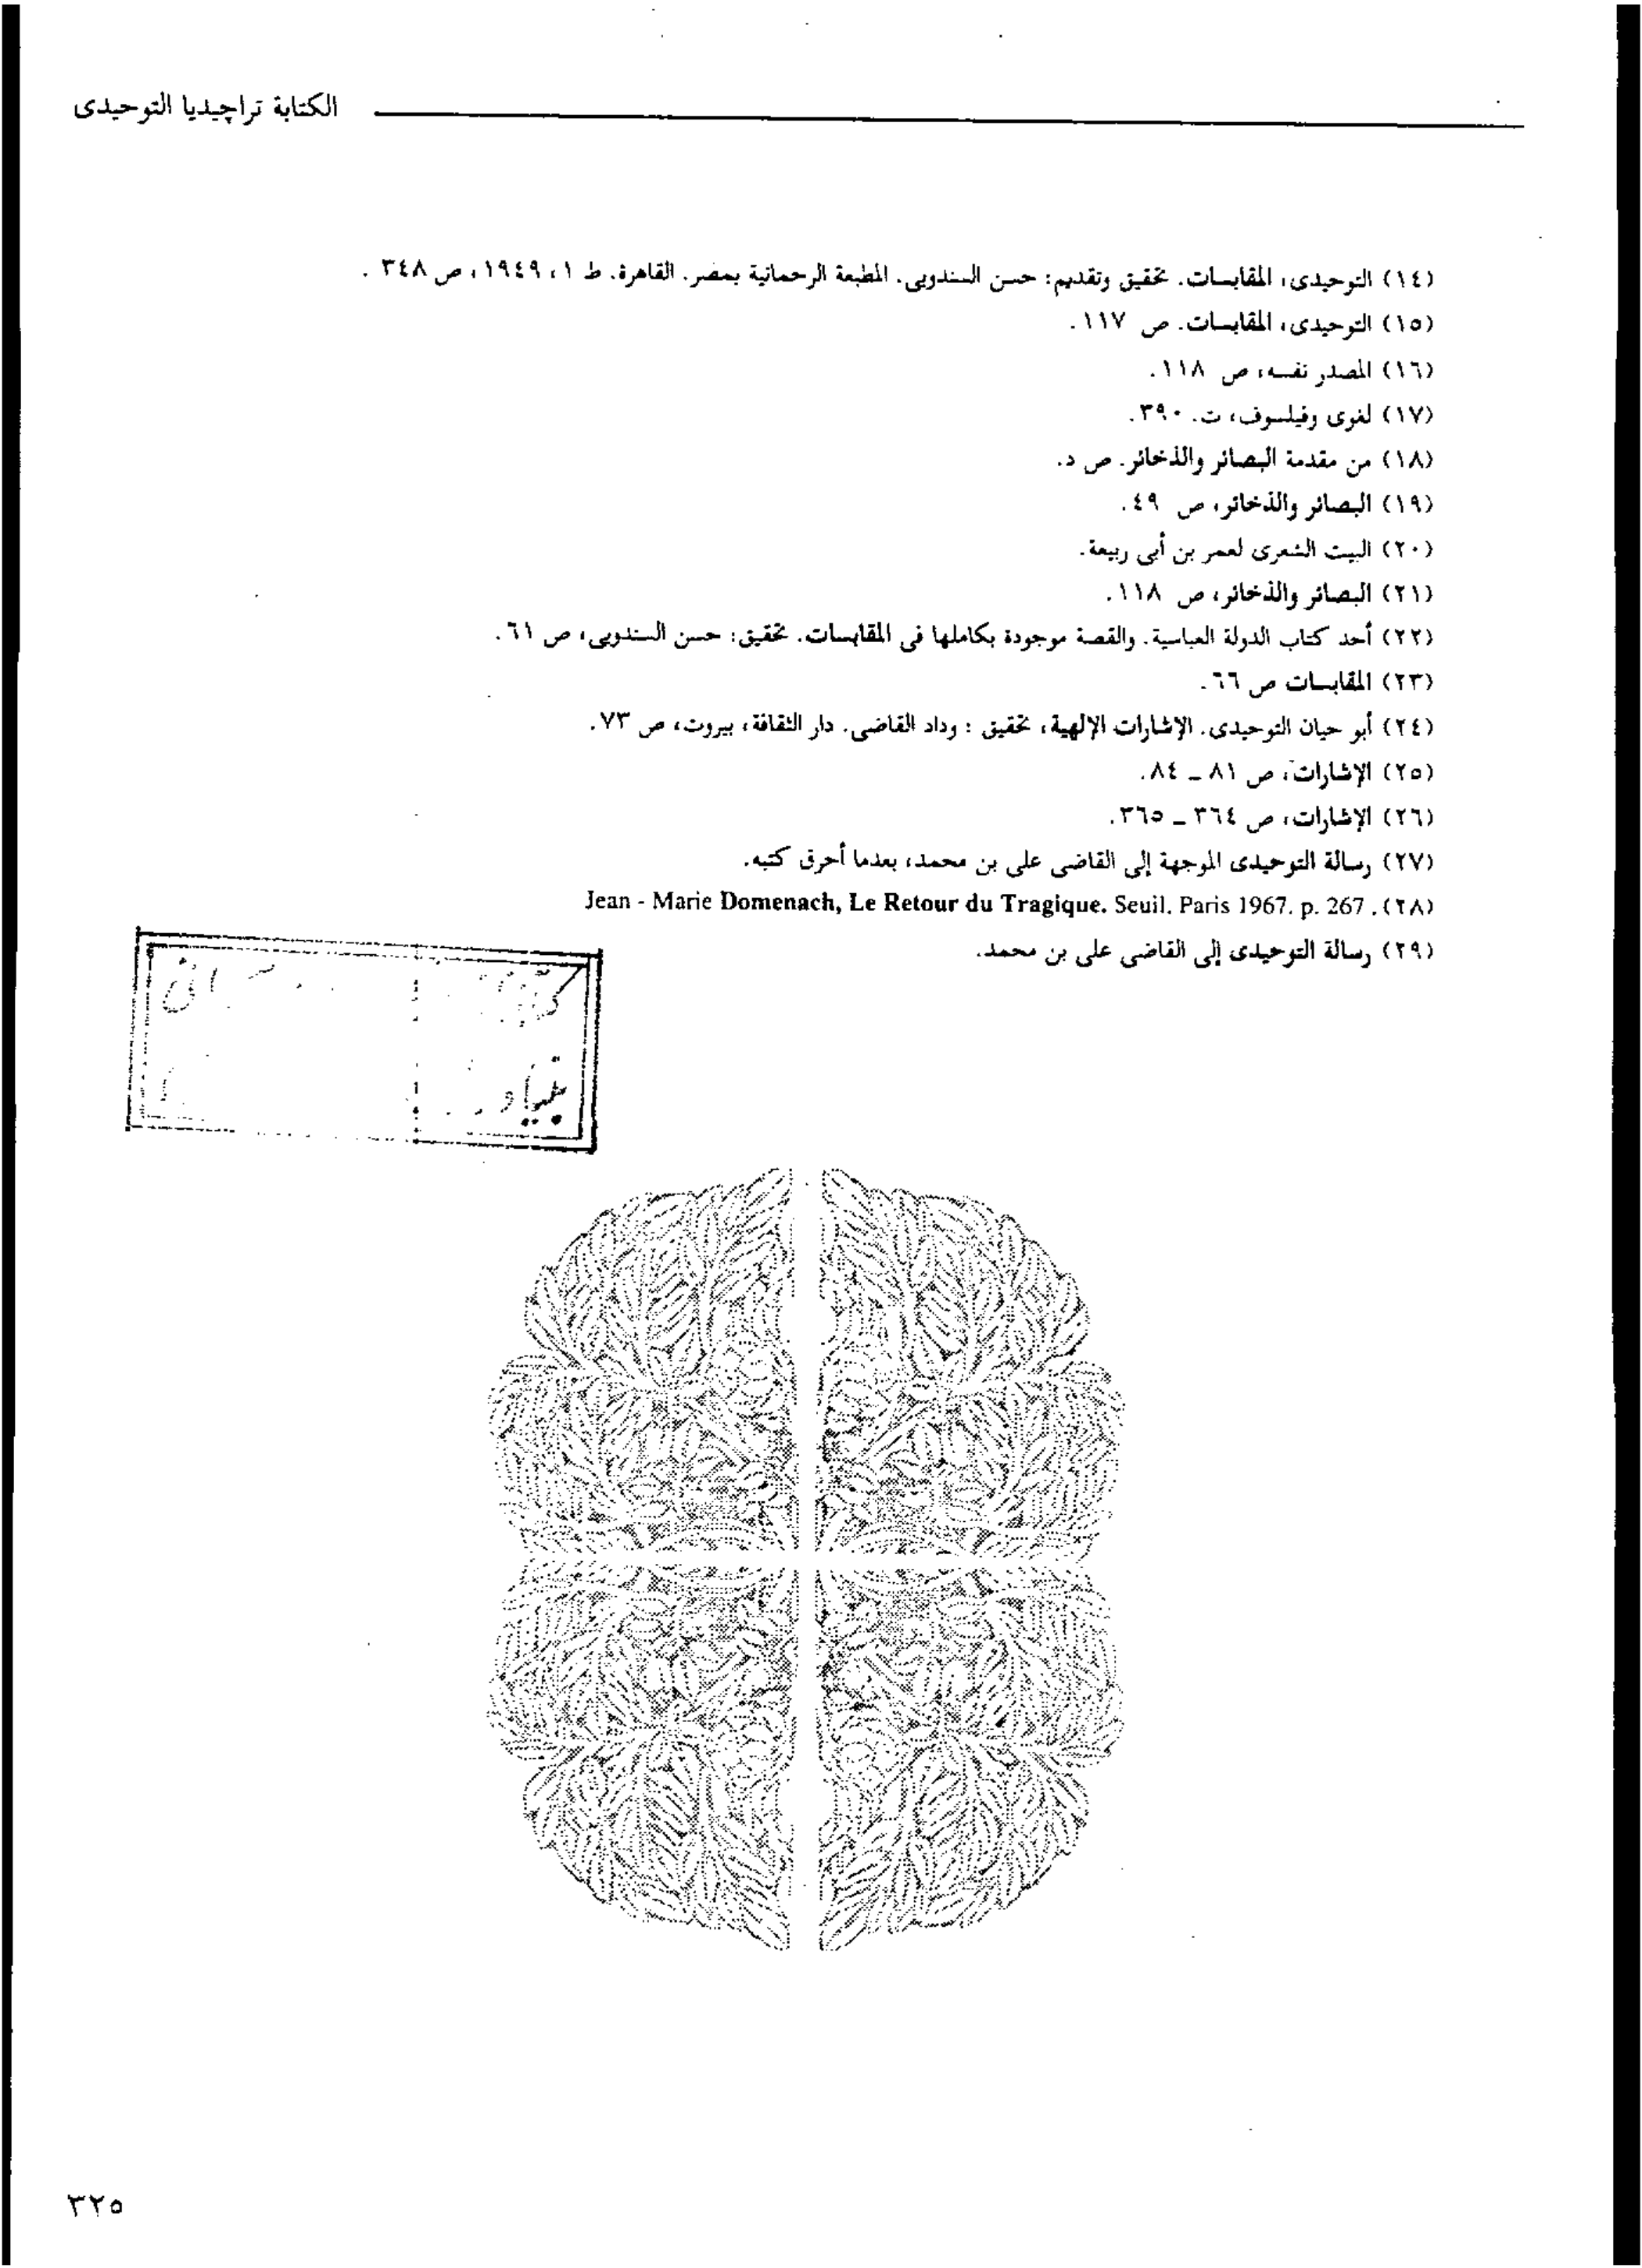 الكتابة تراچيديا التوحيدى
(١٤) التوحيدى، المقابسات. تحقيق وتقديم: حسن السندوبى. المطبعة الرحمانية بمصر. القاهرة. ط ١، ١٩٤٩، ص ٣٤٨ .
(١٥) التوحيدى، المقابسات. ص ١١٧.
(١٦) المصدر نفسه، ص ١١٨.
(١٧) لغوى وفيلسوف، ت. ٣٩٠.
(١٨) من مقدمة البصائر والذخائر. ص د.
(١٩) البصائر والذخائر، ص ٤٩.
(٢٠) البيت الشعرى لعمر بن أبى ربيعة.
(٢١) البصائر والذخائر، ص ١١٨.
(٢٢) أحد كتاب الدولة العباسية. والقصة موجودة بكاملها فى المقابسات. تحقيق: حسن السندوبى، ص ٦١.
(٢٣) المقابسات ص ٦٦.
(٢٤) أبو حيان التوحيدى. الإشارات الإلهية، تحقيق : وداد القاضى. دار الثقافة، بيروت، ص ٧٣.
(٢٥) الإشارات، ص ٨١ ـ ٨٤.
(٢٦) الإشارات، ص ٣٦٤ ـ ٣٦٥.
(٢٧) رسالة التوحيدى الموجهة إلى القاضى على بن محمد، بعدما أحرق كتبه.
(٢٨) Jean - Marie Domenach, Le Retour du Tragique. Seuil. Paris 1967. p. 267 .
(٢٩) رسالة التوحيدى إلى القاضى على بن محمد.
بنیاد
٣٢٥